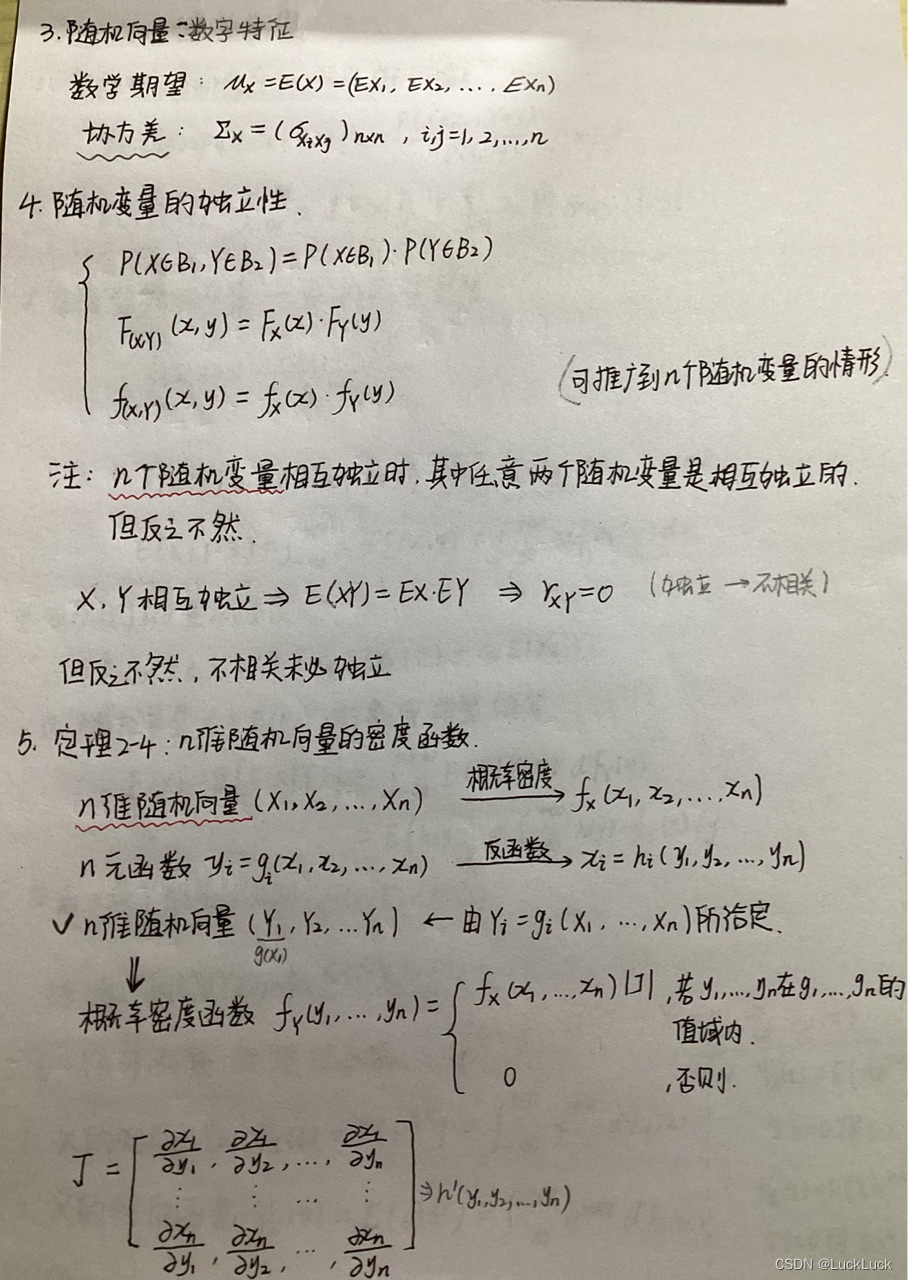 3. 随机向量:数字特征
数学期望: μx = E(X) = (EX₁, EX₂, ..., EXn)
协方差: Σx = (σxixj)n×n , i,j=1,2,...,n
4. 随机变量的独立性.
P(X∈B₁,Y∈B₂) = P(X∈B₁)·P(Y∈B₂)
F(X,Y)(x,y) = Fx(x)·FY(y)
(可推广到n个随机变量的情形)
f(X,Y)(x,y) = fx(x)·fY(y)
注: n个随机变量相互独立时,其中任意两个随机变量是相互独立的.
但反之不然.
X, Y相互独立 ⇒ E(XY)=EX·EY ⇒ rXY=0 (独立 → 不相关)
但反之不然, 不相关未必独立
5. 定理2-4: n维随机向量的密度函数.
n维随机向量 (X₁,X₂,...,Xn) 概率密度→ fx(x₁,x₂,...,xn)
n元函数 yi=gi(x₁,x₂,...,xn) 反函数→ xi=hi(y₁,y₂,...,yn)
✓ n维随机向量 (Y₁,Y₂,...Yn) ← 由Yi=gi(X₁,...,Xn)所给定.
g(x₁)
⇓
概率密度函数 fY(y₁,...,yn) = { fx(x₁,...,xn)|J| ,若y₁,...,yn在g₁,...,gn的
值域内.
0 ,否则.
J = [ ∂x₁/∂y₁, ∂x₁/∂y₂, ..., ∂x₁/∂yn
⋮ ⋮ ... ⋮
∂xn/∂y₁, ∂xn/∂y₂, ..., ∂xn/∂yn ] ⇒h'(y₁,y₂,...,yn)
CSDN @LuckLuck